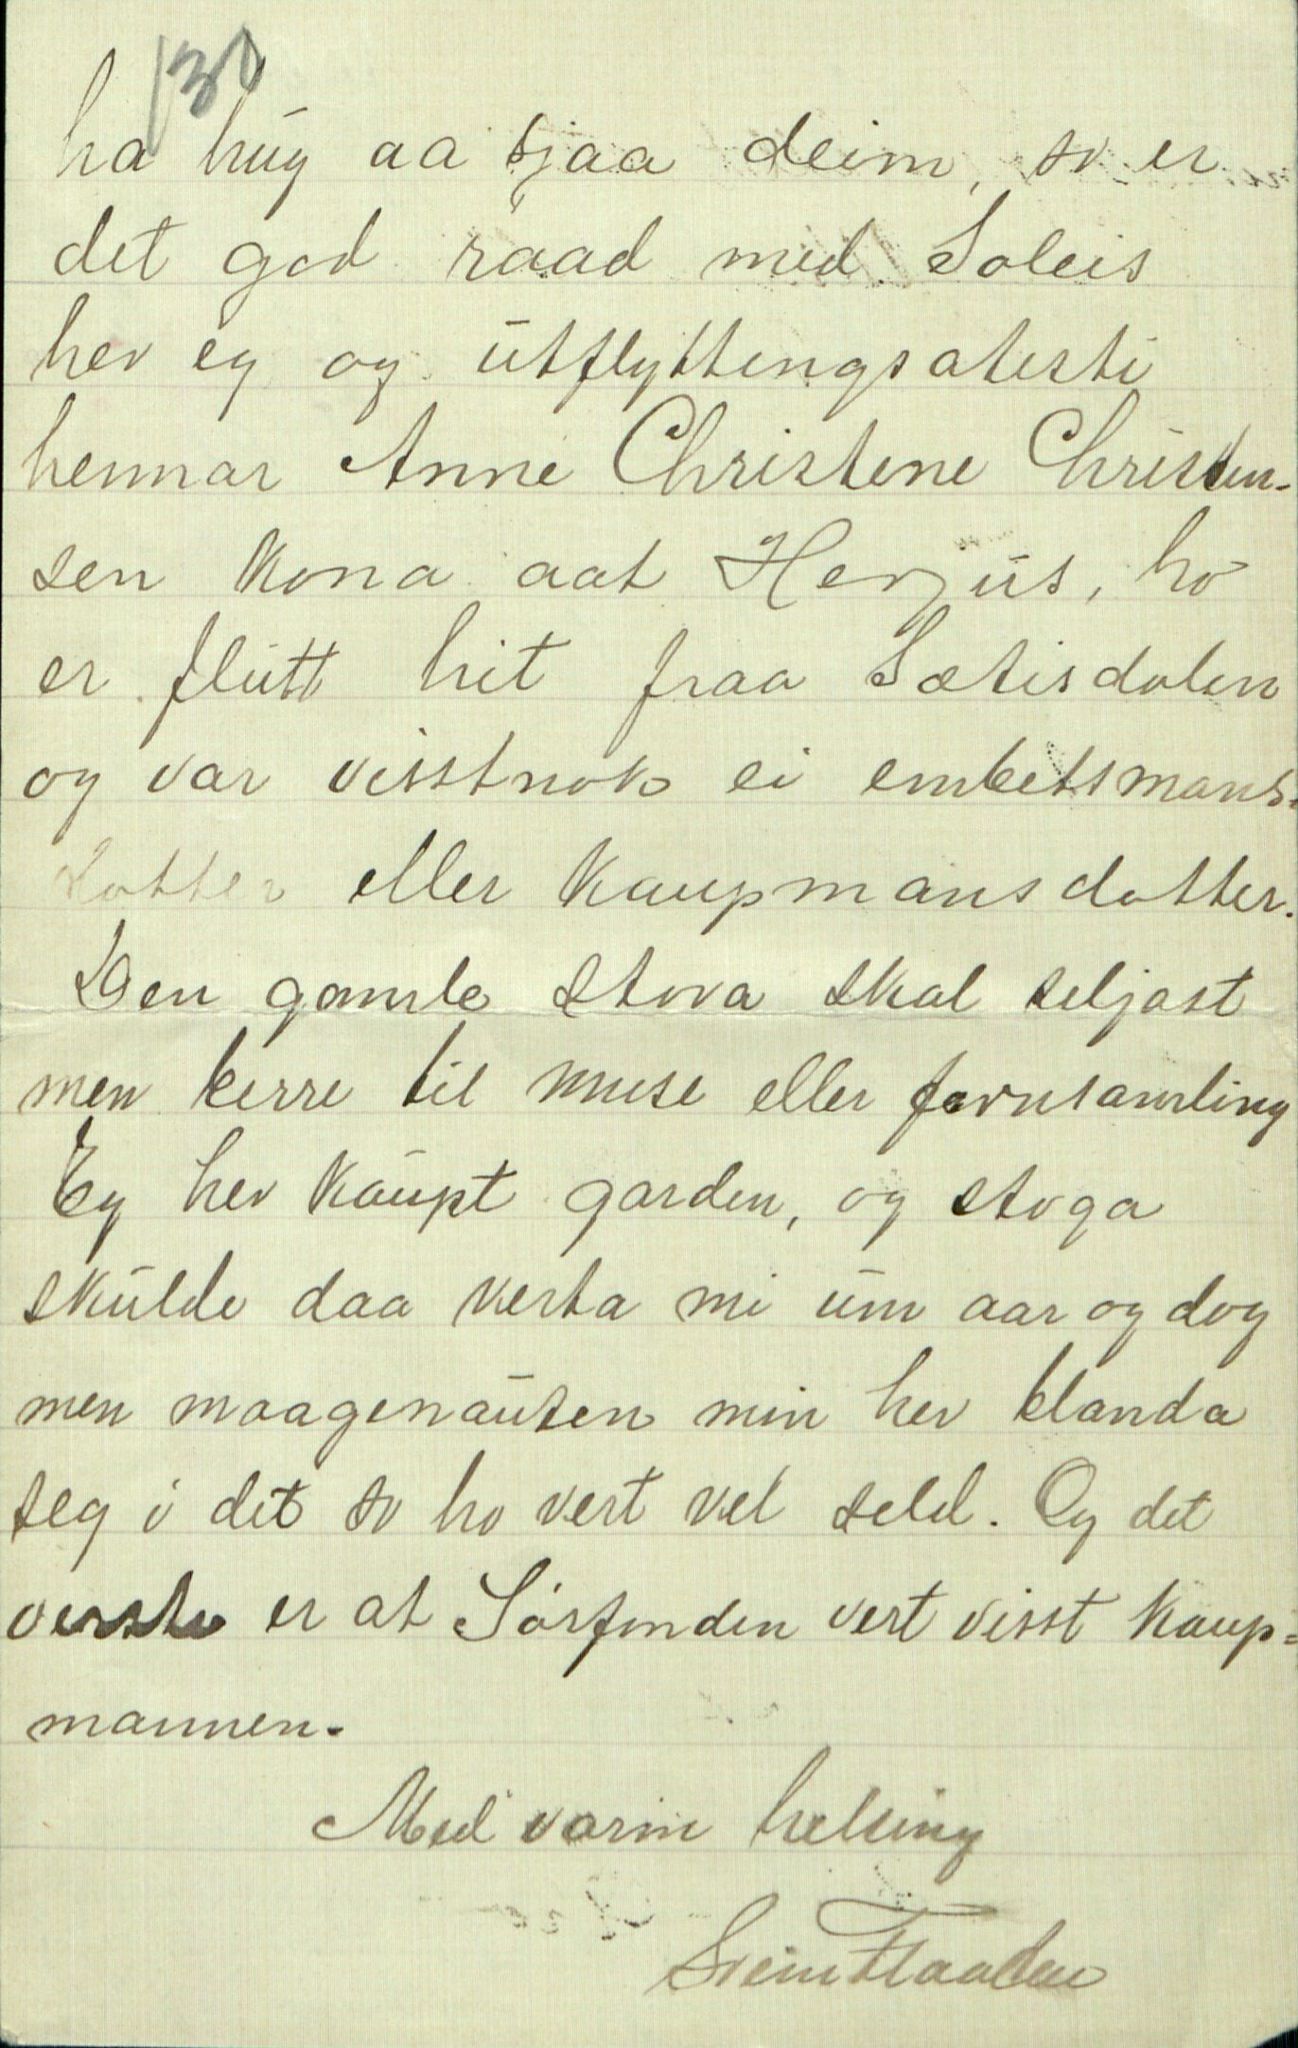 130
ha hug aa sjaa deim, so er
det god raad med Soleis
hev eg og utflyttingsatesti
hennar Anne Christene Christen-
sen kona aat Herjus, ho
er flutt hit fraa Sætisdalen
og var visstnok ei embetsmans-
dotter eller kaupmansdotter.
Den gamle stova skal seljast
men berre til muse eller fornsamling
Eg hev kaupt garden, og stoga
skulde daa verta mi um aar og dog
men maagenauten min hev blanda
seg i det so ho vert vel seld. Og det
verste er at Sörfonden vert visst kaup=
mannen.
Med varm helsing
Svein Flaaden